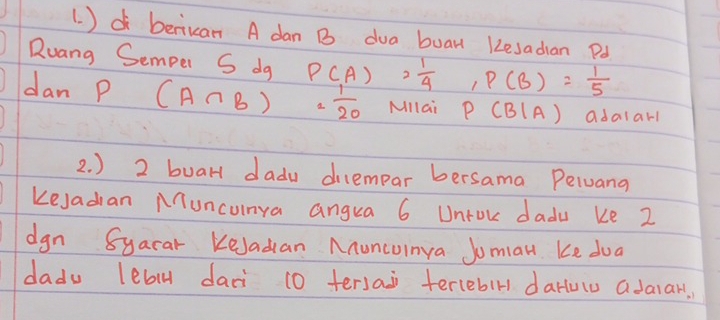 1.) di berikan A dan B dua buah kejadian Pd
Ruang Sempel S dg P(A) = 1/4 , P(B) = 1/5
dan P (A ∩ B) = 1/20 Nilai P (B|A) adalah
2.) 2 buah dadu dilempar bersama Peluang
kejadian Munculnya angka 6 Untuk dadu ke 2
dgn Syarat kejadian Munculnya Jumlah ke dua
dadu lebih dari 10 terjadi terlebih dahulu adalah..